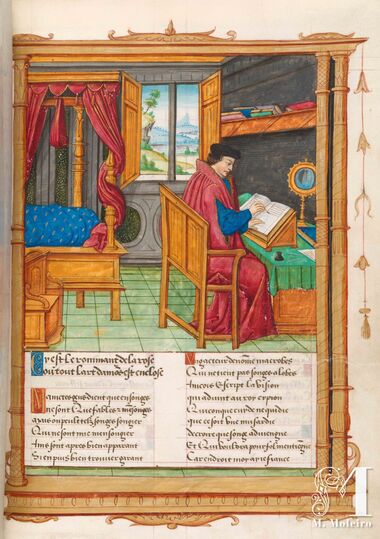 Cy est le rommant de la rose
Ou tout lart damo&est enclose
Maintes gens dient que en songes
Ne sont que fables &mensonges
Mais on peult telz songes songer
Qui ne sont mie mensonger
Ains sont apres bien apparant
Si en puis bien trouver garant
Ung acteur denomme macrobes
Qui ne tient pas songes a lobes
Aincois escript la vision
Qui advint au roy cipion
Quiconque cuide ne qui die
Que ce soit une musardie
De croire que songe adviengne
Et qui vouldra pour fol men tiengne
Car endroit moy ay ie fiance
M
M. Moleiro